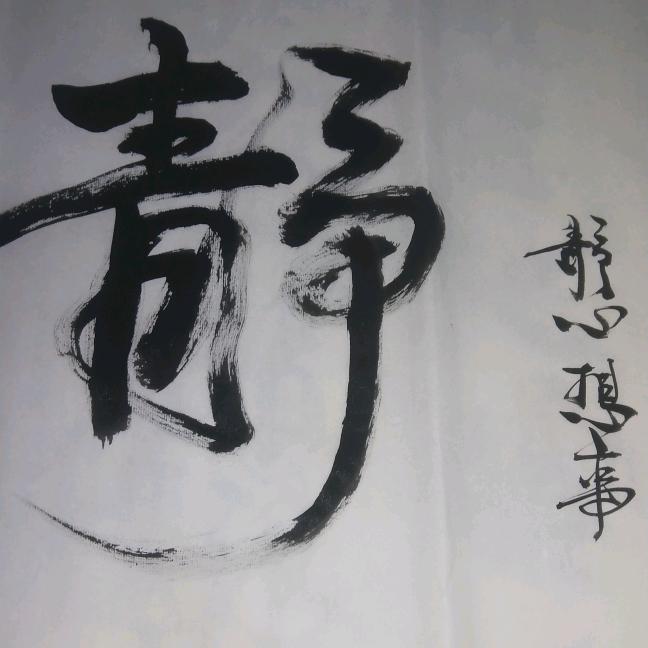 静
静心想事